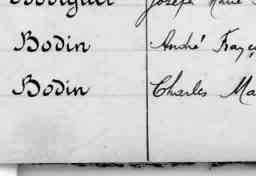 Joseph Marie
Bodin André Franç
Bodin Charles Ma